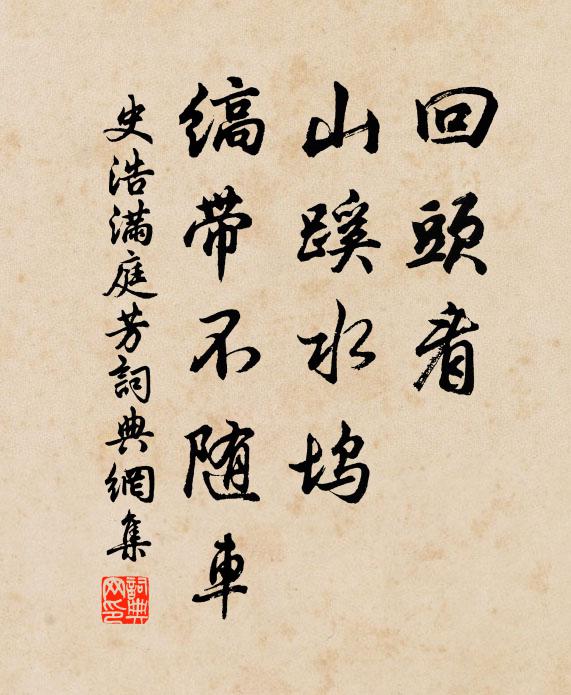 回頭看
山蹊水坞
缟帶不随車
史浩滿庭芳詞典網集
詞典网印